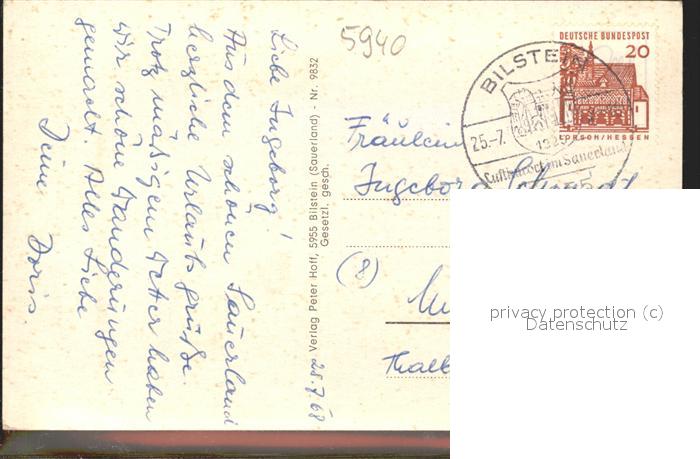 Liebe Ingeborg!
Aus dem schönen Sauerland
herzliche Urlaubsgrüße.
Trotz mäßigem Wetter haben
wir schöne Wanderungen
gemacht. Alles Liebe
Deine Doris.
Verlag Peter Hoff, 5955 Bilstein (Sauerland) - Nr. 9832
Gesetzl. gesch.
25.7.68
5940
DEUTSCHE BUNDESPOST
20
LORSCH/HESSEN
BILSTEIN
25.-7.
1325
Luftkurort im Sauerland
Fräulein
Ingeborg
(8)
privacy protection (c)
Datenschutz